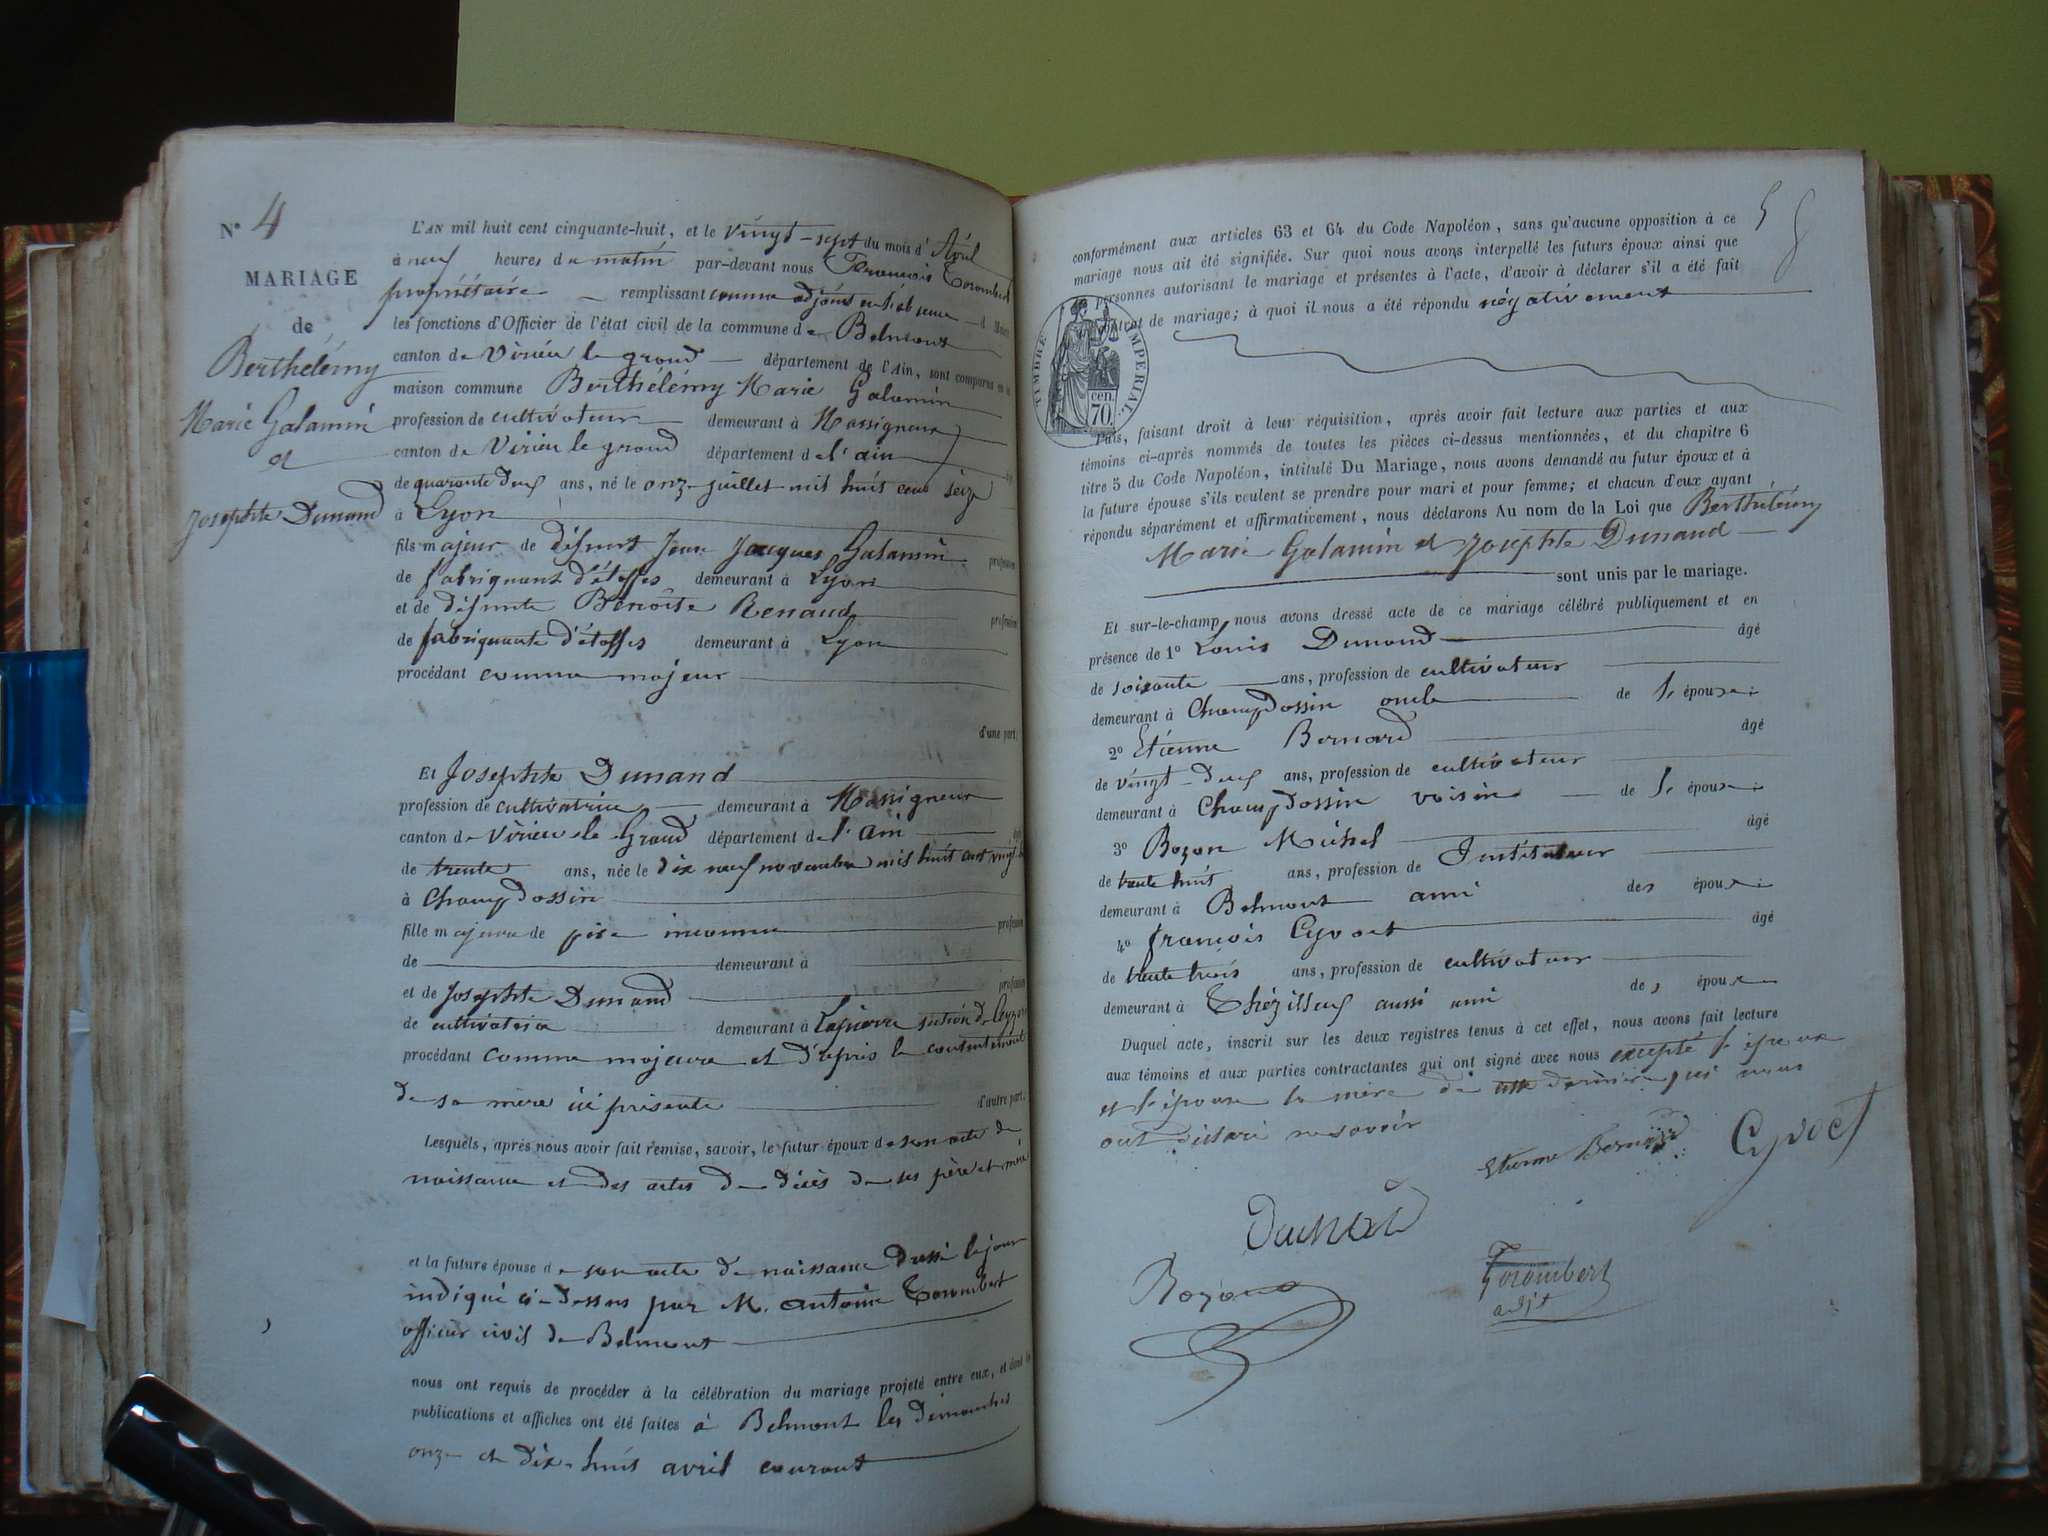 N° 4
MARIAGE
de
Berthélémy
Marie Galamin
et
Josephte Dunand
L'AN mil huit cent cinquante-huit, et le vingt-sept du mois d'Avril
à neuf heures du matin par-devant nous François Torombert
propriétaire remplissant comme adjoint en l'absence d Maire
les fonctions d'Officier de l'état civil de la commune de Belmont
canton de Virieu le grand département de l'Ain, sont comparus en la
maison commune Berthélémy Marie Galamin
profession de cultivateur demeurant à Massigneux
canton de Virieu le grand département de l'ain
de quarante deux ans, né le onze juillet mil huit cent seize
à Lyon
fils majeur de défunt Jean Jacques Galamin profession
de fabriquant d'étoffes demeurant à Lyon
et de défunte Benoîte Renaud profession
de fabriquante d'étoffes demeurant à Lyon
procédant comme majeur
d'une part,
Et Josephte Dunand
profession de cultivatrice demeurant à Massigneux
canton de Virieu-le-Grand département de l'ain
de trente ans, née le dix neuf novembre mil huit cent vingt
à Champdossin
fille majeure de père inconnu profession
de demeurant à
et de Josephte Dunand profession
de cultivatrice demeurant à Lapierre section de
procédant comme majeure et d'après le consentement
de sa mère ici présente d'autre part.
Lesquels, après nous avoir fait remise, savoir, le futur époux de son acte de
naissance et des actes de décès de ses père et mère
et la future épouse de son acte de naissance dressé le jour
indiqué ci-dessus par M. antoine Torombert
officier civil de Belmont
nous ont requis de procéder à la célébration du mariage projeté entre eux, et dont les
publications et affiches ont été faites à Belmont les dimanches
onze et dix-huit avril courant
conformément aux articles 63 et 64 du Code Napoléon, sans qu'aucune opposition à ce
mariage nous ait été signifiée. Sur quoi nous avons interpellé les futurs époux ainsi que
personnes autorisant le mariage et présentes à l'acte, d'avoir à déclarer s'il a été fait
contrat de mariage; à quoi il nous a été répondu négativement
TIMBRE IMPERIAL.
cen.
70.
Puis, faisant droit à leur réquisition, après avoir fait lecture aux parties et aux
témoins ci-après nommés de toutes les pièces ci-dessus mentionnées, et du chapitre 6
titre 5 du Code Napoléon, intitulé Du Mariage, nous avons demandé au futur époux et à
la future épouse s'ils veulent se prendre pour mari et pour femme; et chacun d'eux ayant
répondu séparément et affirmativement, nous déclarons Au nom de la Loi que Berthélémy
Marie Galamin et Josephte Dunand
sont unis par le mariage.
Et sur-le-champ nous avons dressé acte de ce mariage célébré publiquement et en
présence de 1° Louis Dunand âgé
de soixante ans, profession de cultivateur
demeurant à Champdossin oncle de l'épouse
2° Etienne Bernard âgé
de vingt-deux ans, profession de cultivateur
demeurant à Champdossin voisin de l'épouse
3° Bozon Michel âgé
de trente huit ans, profession de Instituteur
demeurant à Belmont ami des époux
4° françois Cyvoct âgé
de trente trois ans, profession de cultivateur
demeurant à Thézillieux aussi ami des époux
Duquel acte, inscrit sur les deux registres tenus à cet effet, nous avons fait lecture
aux témoins et aux parties contractantes qui ont signé avec nous excepté l'époux
et l'épouse la mère de cette dernière qui nous
ont déclaré ne savoir
Etienne Bernard Cyvoct
Dunand
Bozon
Torombert
adjt